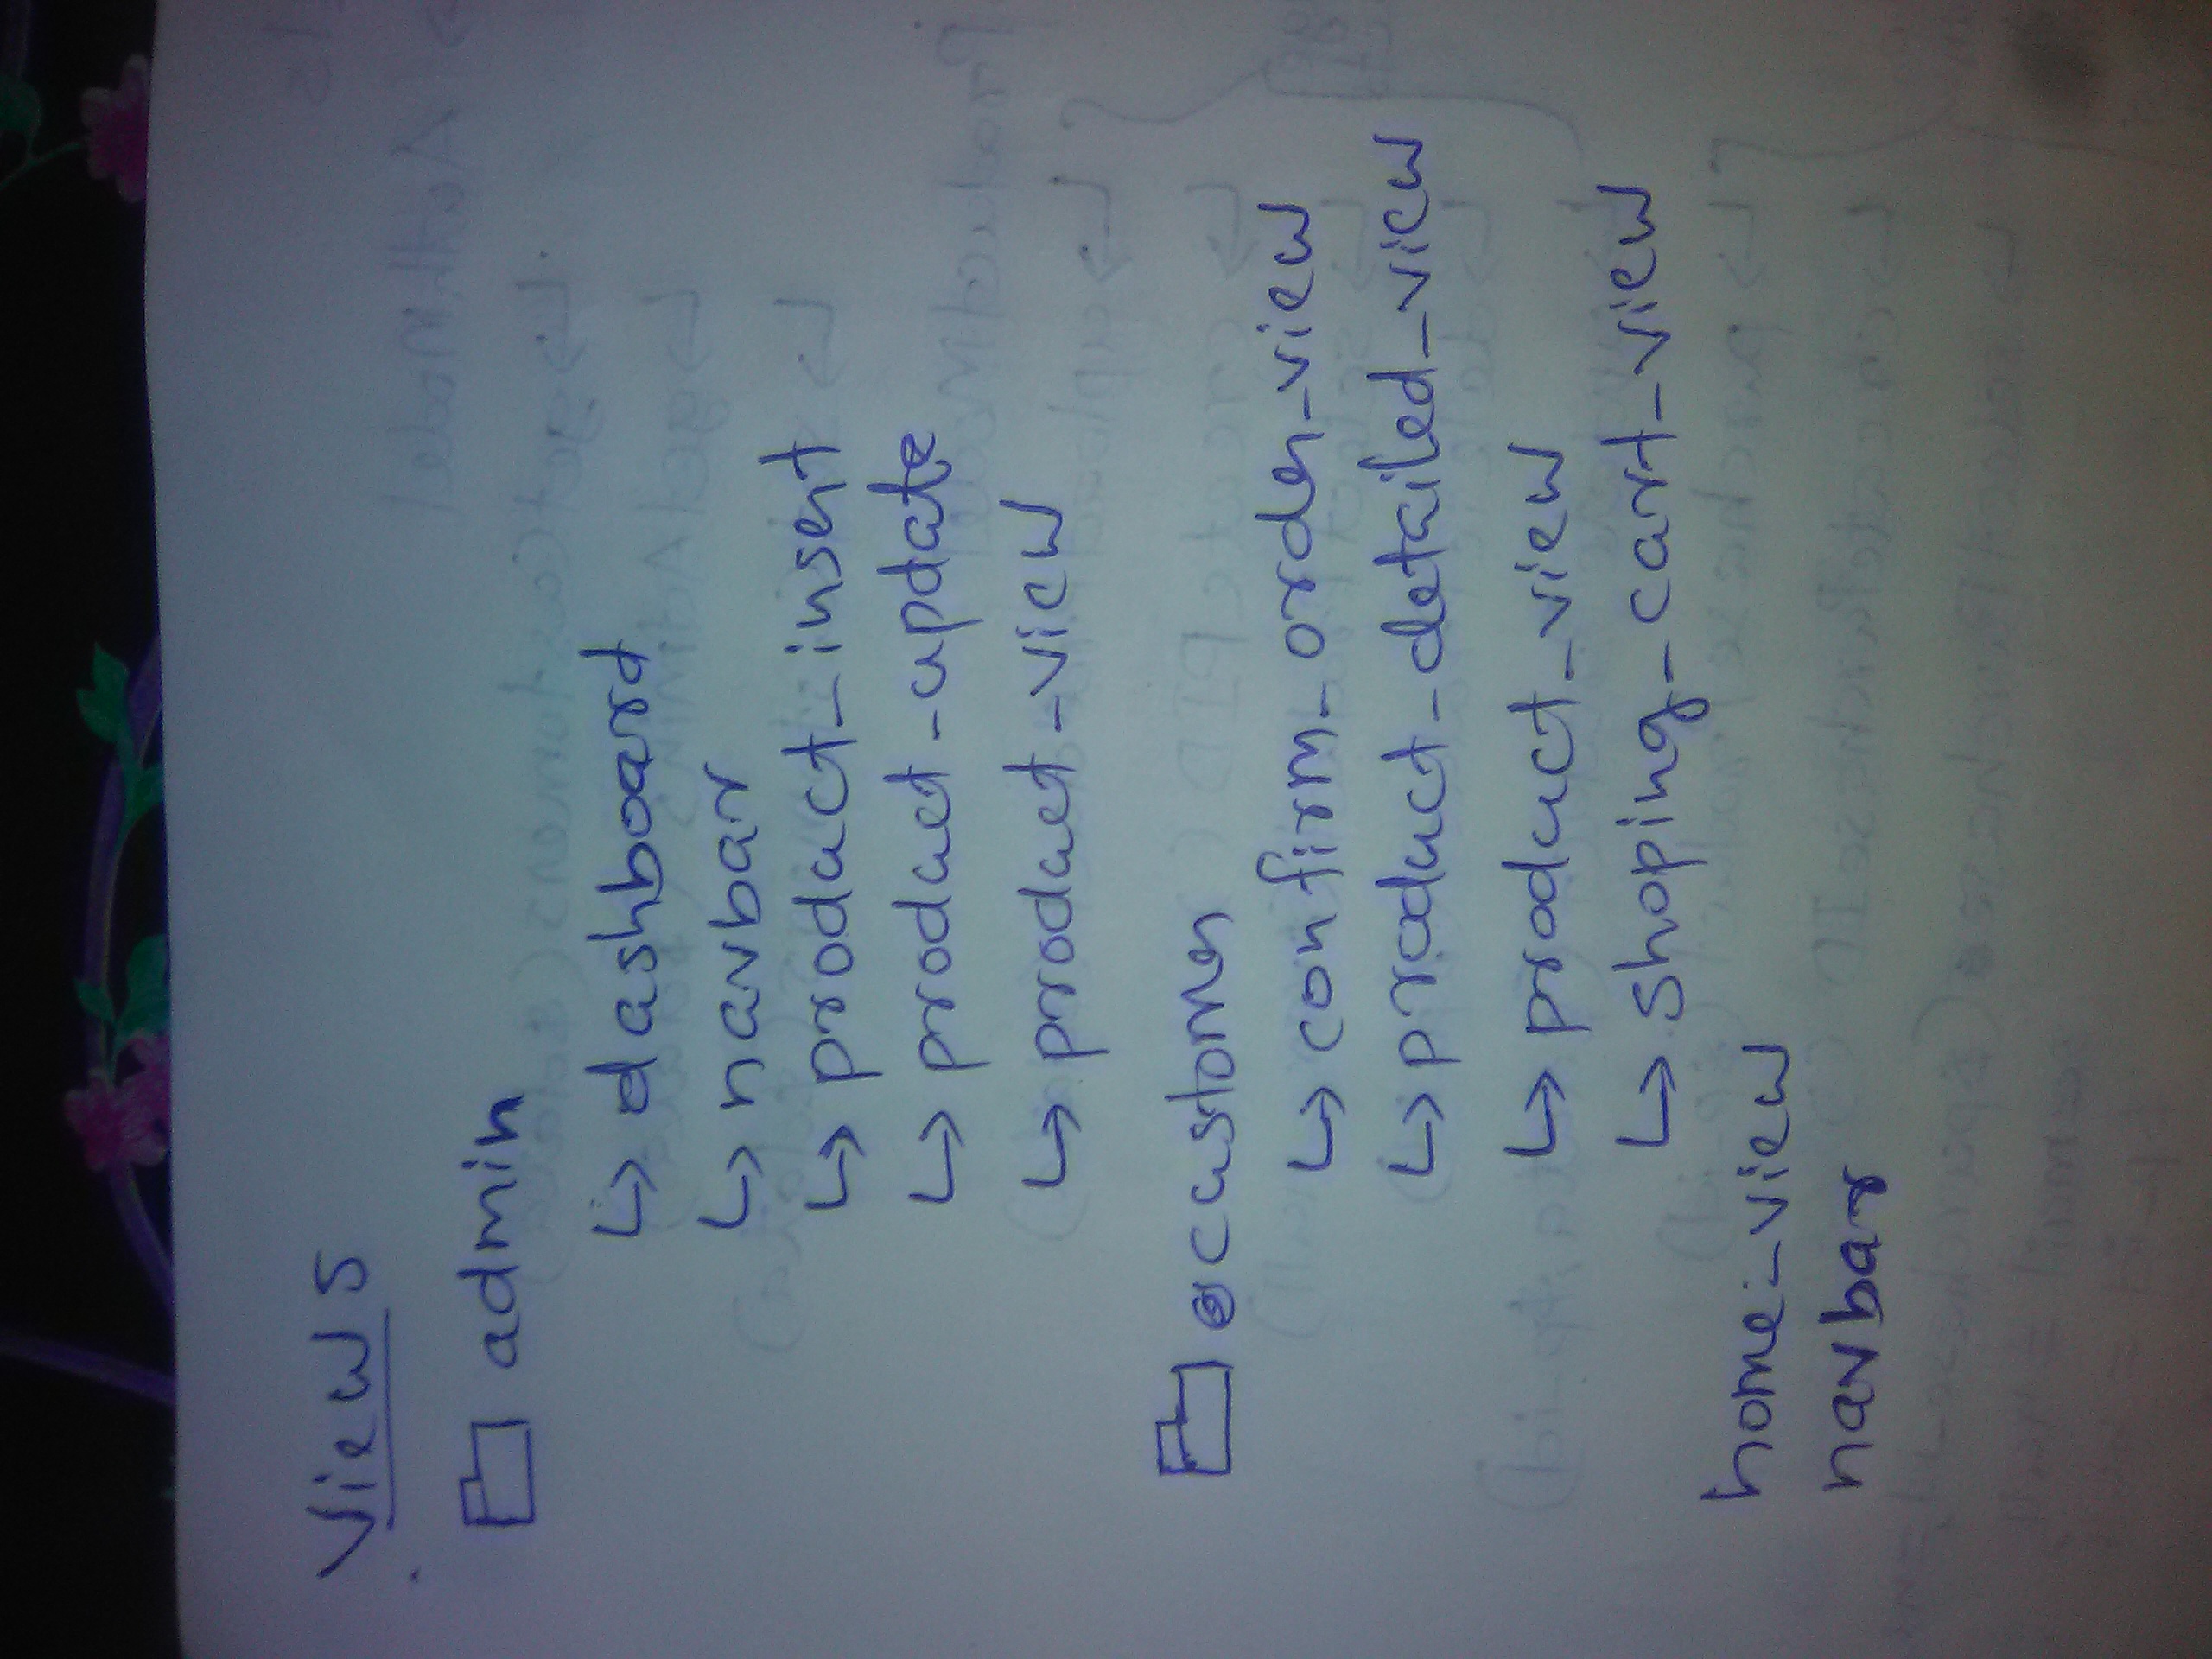 Views
admin
↳ dashboard
↳ navbar
↳ product_insert
↳ product_update
↳ product_view
customer
↳ confirm_order_view
↳ product_detailed_view
↳ product_view
↳ shoping_cart_view
home_view
navbar